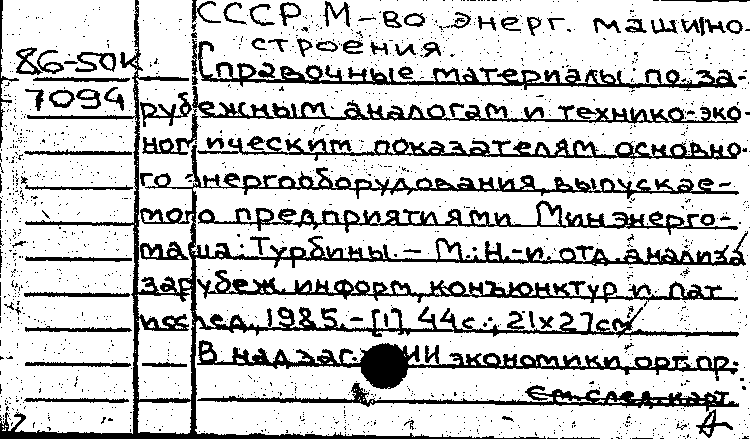 СССР. М-во энерг. машино-
строения.
86-50к
[Справочные материалы по за-
7094
рубежным аналогам и технико-эко-
ногическим показателям основно-
го энергооборудования, выпускае-
мого предприятиями Минэнерго-
маша: Турбины. – М.: Н.-и. отд. анализа
зарубеж. информ, конъюнктур и пат
исслед, 1985. – [1], 44с.; 21х27см
В надзаг.: НИИ экономики, орг. пр.
См. след. карт.